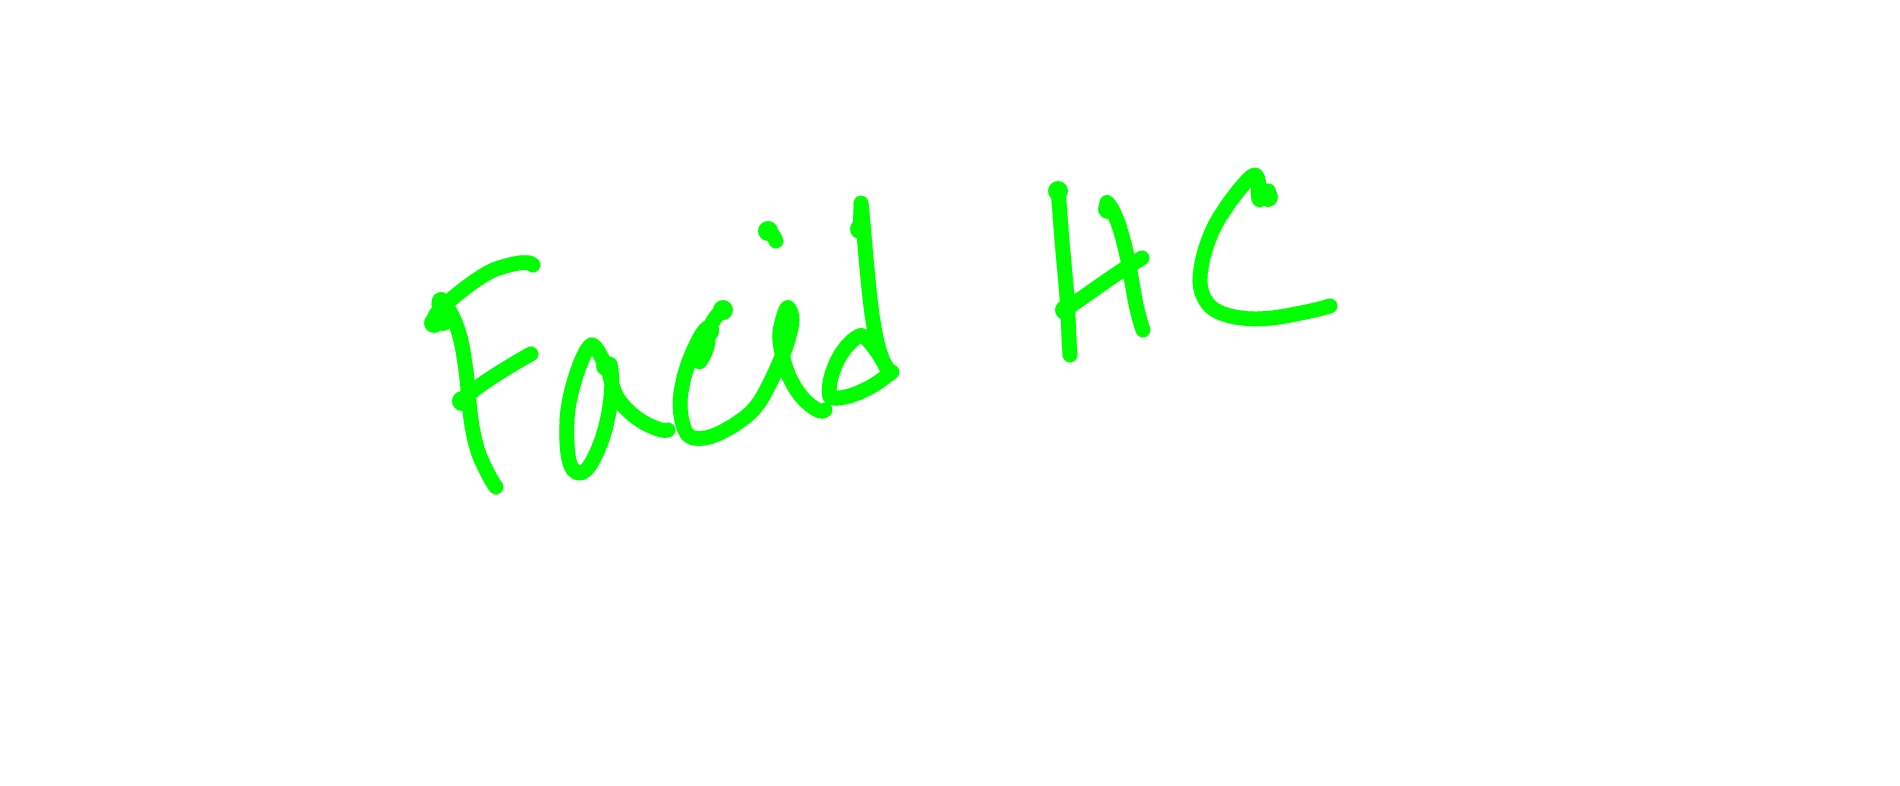 Facid HC